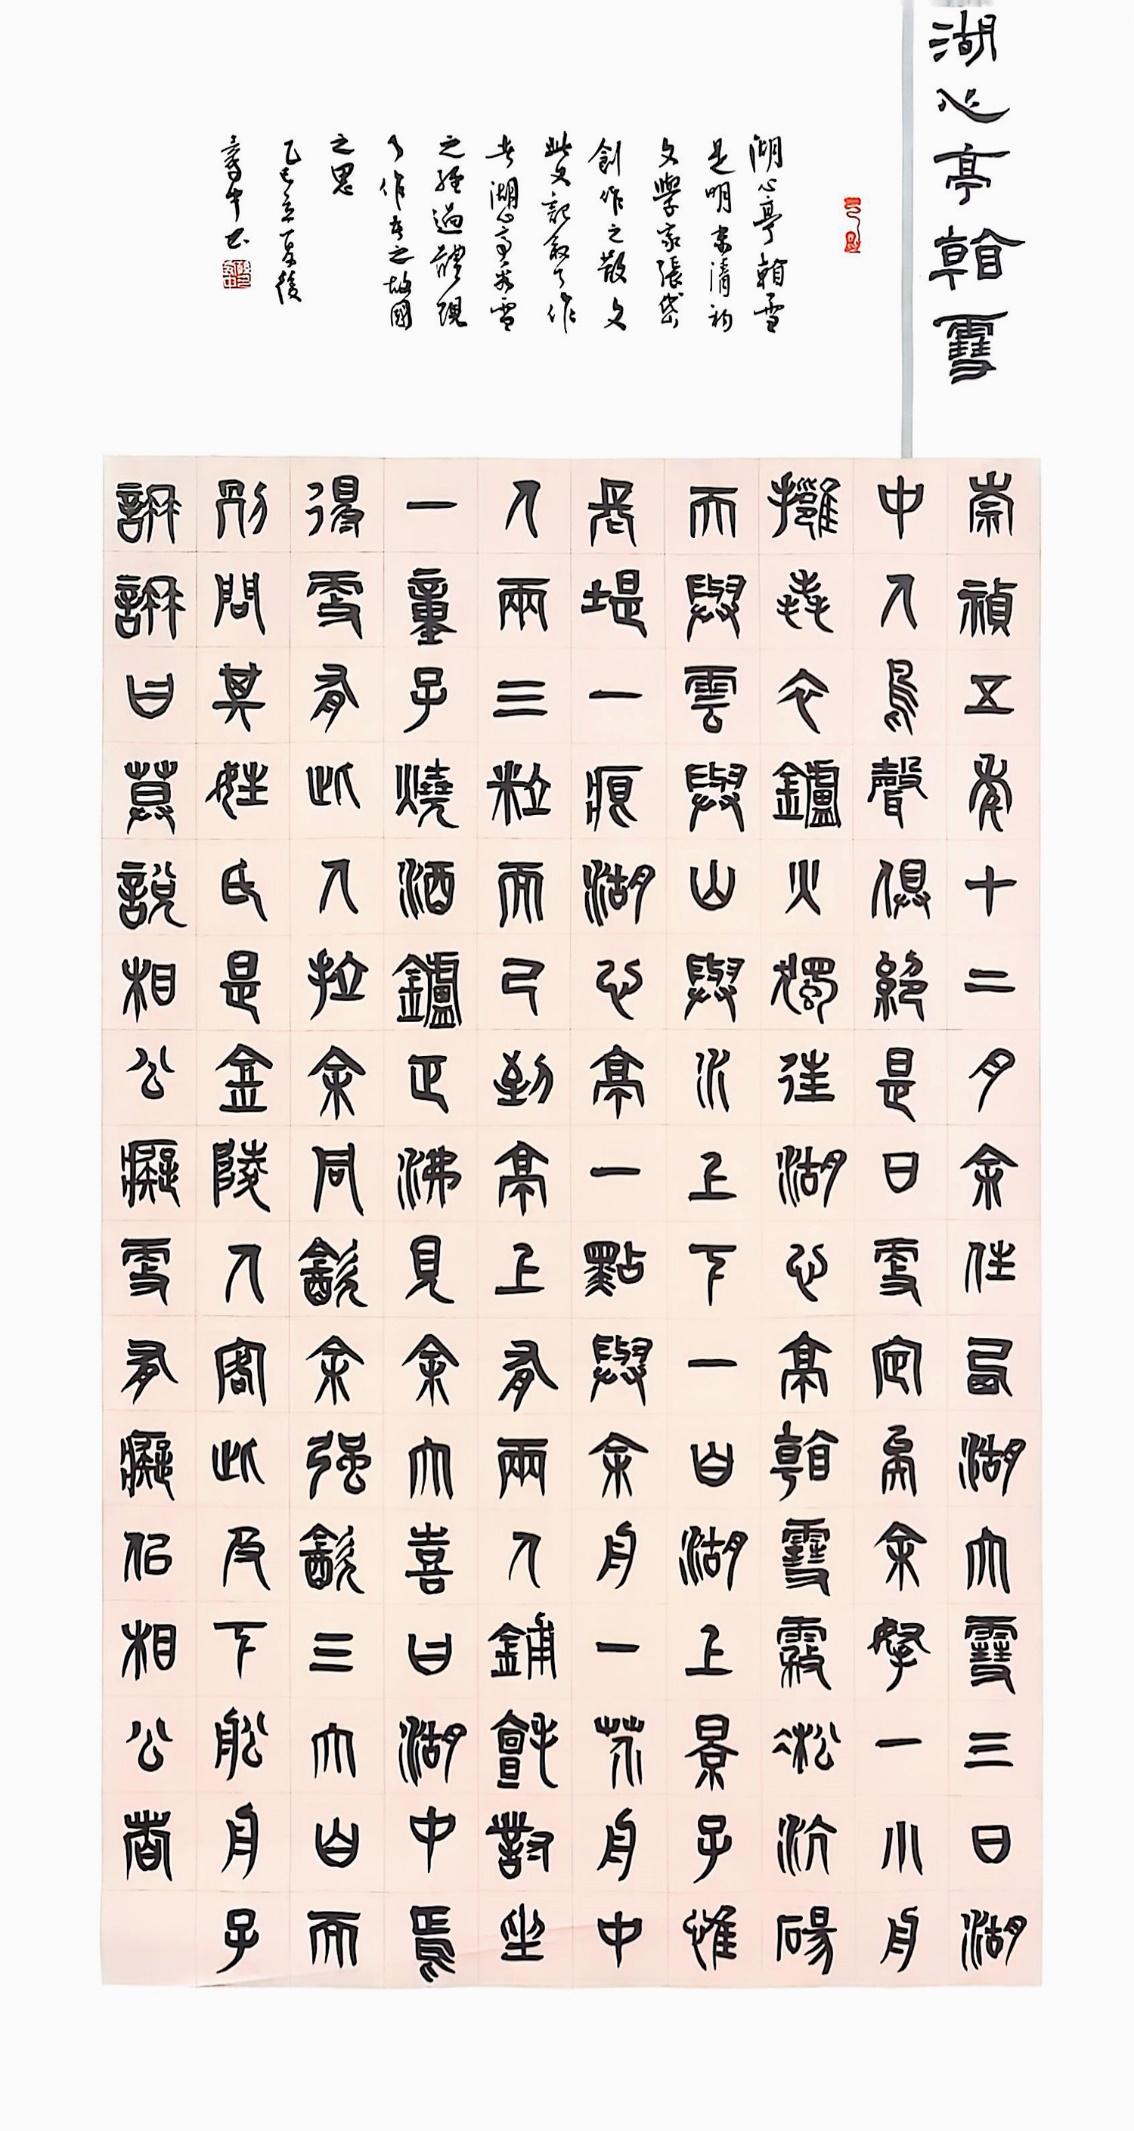 湖心亭看雪
崇禎五年十二月余住西湖大雪三日湖
中人鳥聲俱絕是日更定矣余拏一小舟
擁毳衣爐火獨往湖心亭看雪霧凇沆碭
天與雲與山與水上下一白湖上影子惟
長堤一痕湖心亭一點與余舟一芥舟中
人兩三粒而已到亭上有兩人鋪氈對坐
一童子燒酒鑪正沸見余大喜曰湖中焉
得更有此人拉余同飲余強飲三大白而
別問其姓氏是金陵人客此及下船舟子
喃喃曰莫說相公癡更有癡似相公者
湖心亭看雪
是明末清初
文學家張岱
創作之散文
此文記叙了作
者湖心亭看雪
之經過體現
了作者之故國
之思
乙巳立夏後
壽中書